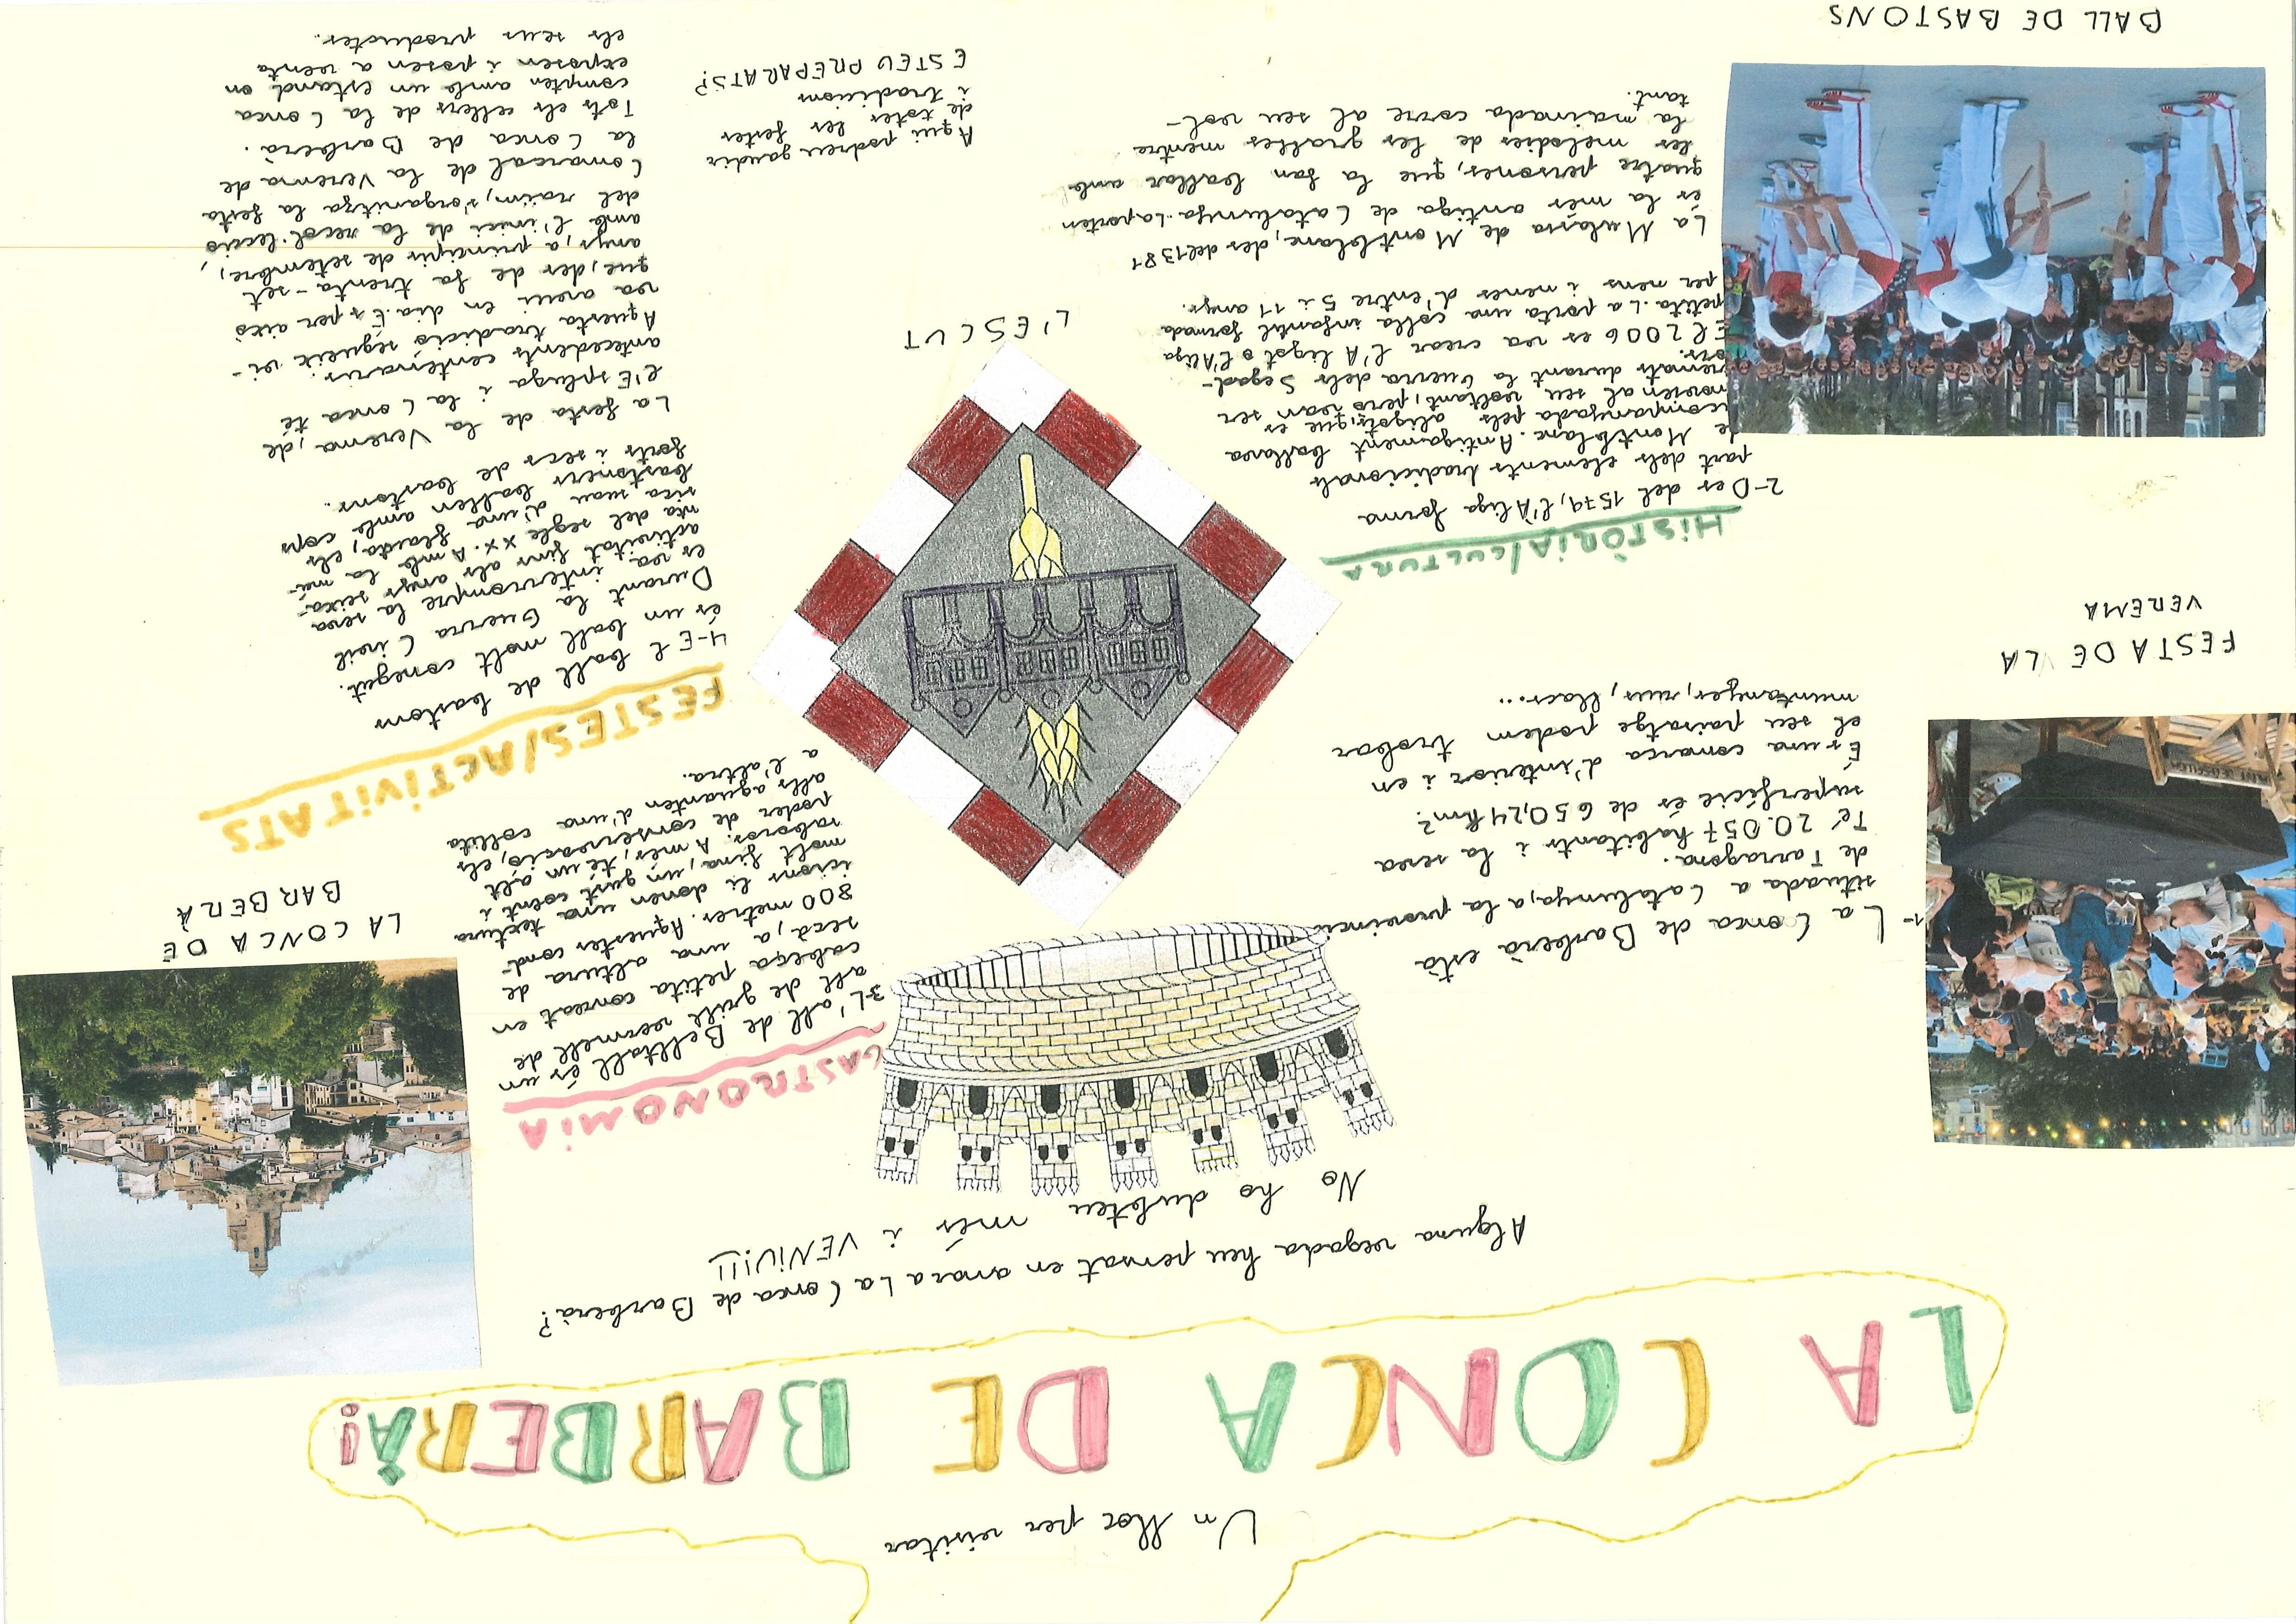 Un lloc per visitar
LA CONCA DE BARBERÀ!
Alguna vegada heu pensat en anar a La Conca de Barberà?
No ho dubteu més i VENIU!!!
1- La Conca de Barberà està
situada a Catalunya, a la província
de Tarragona.
Té 20.057 habitants i la seva
superfície és de 650,24 km².
És una comarca d'interior i en
el seu paisatge podem trobar
muntanyes, rius, llacs...
FESTA DE LA
VEREMA
HISTÒRIA/CULTURA
2- Des del 1579, l'Àliga forma
part dels elements tradicionals
de Montblanc. Antigament ballava
acompanyada pels aligots, que es
movien al seu voltant, però van ser
cremats durant la Guerra dels Segad-
ors.
El 2006 es va crear l'Aligot o l'Àliga
petita. La porta una colla infantil formada
per nens i nenes d'entre 5 i 11 anys.
La Mulassa de Montblanc, des del 1381
és la més antiga de Catalunya. La porten
quatre persones, que la fan ballar amb
les melodies de les gralles mentre
la mainada corre al seu vol-
tant.
BALL DE BASTONS
L'ESCUT
Aqui podreu gaudir
de totes les festes
i tradicions
ESTEU PREPARATS?
LA CONCA DE
BARBERÀ
GASTRONOMIA
3- L'all de Belltall és un
all de grill vermell de
cabeça petita conreat en
secà, a una altura de
800 metres. Aquestes cond-
icions li donen una textura
molt fina, un gust coent i
saborós. A més, té un alt
poder de conservació, els
alls aguanten d'una collita
a l'altra.
FESTES/ACTIVITATS
4- El ball de bastons
és un ball molt conegut.
Durant la Guerra Civil
es va interrompre la seva
activitat fins als anys seixa-
nta del segle XX. Amb la mú-
sica suau d'una flauta, els
bastoners ballen amb cops
forts i secs de bastons.
La festa de la Verema, de
l'Espluga i la Conca té
antecedents centenaris.
Aquesta tradició segueix vi-
va avui en dia. És per això
que, des de fa trenta-set
anys, a principis de setembre,
amb l'inici de la recol·lecció
del raïm, s'organitza la festa
Comarcal de la Verema de
la Conca de Barberà.
Tots els cellers de la Conca
compten amb un estand on
exposen i posen a venta
els seus productes.